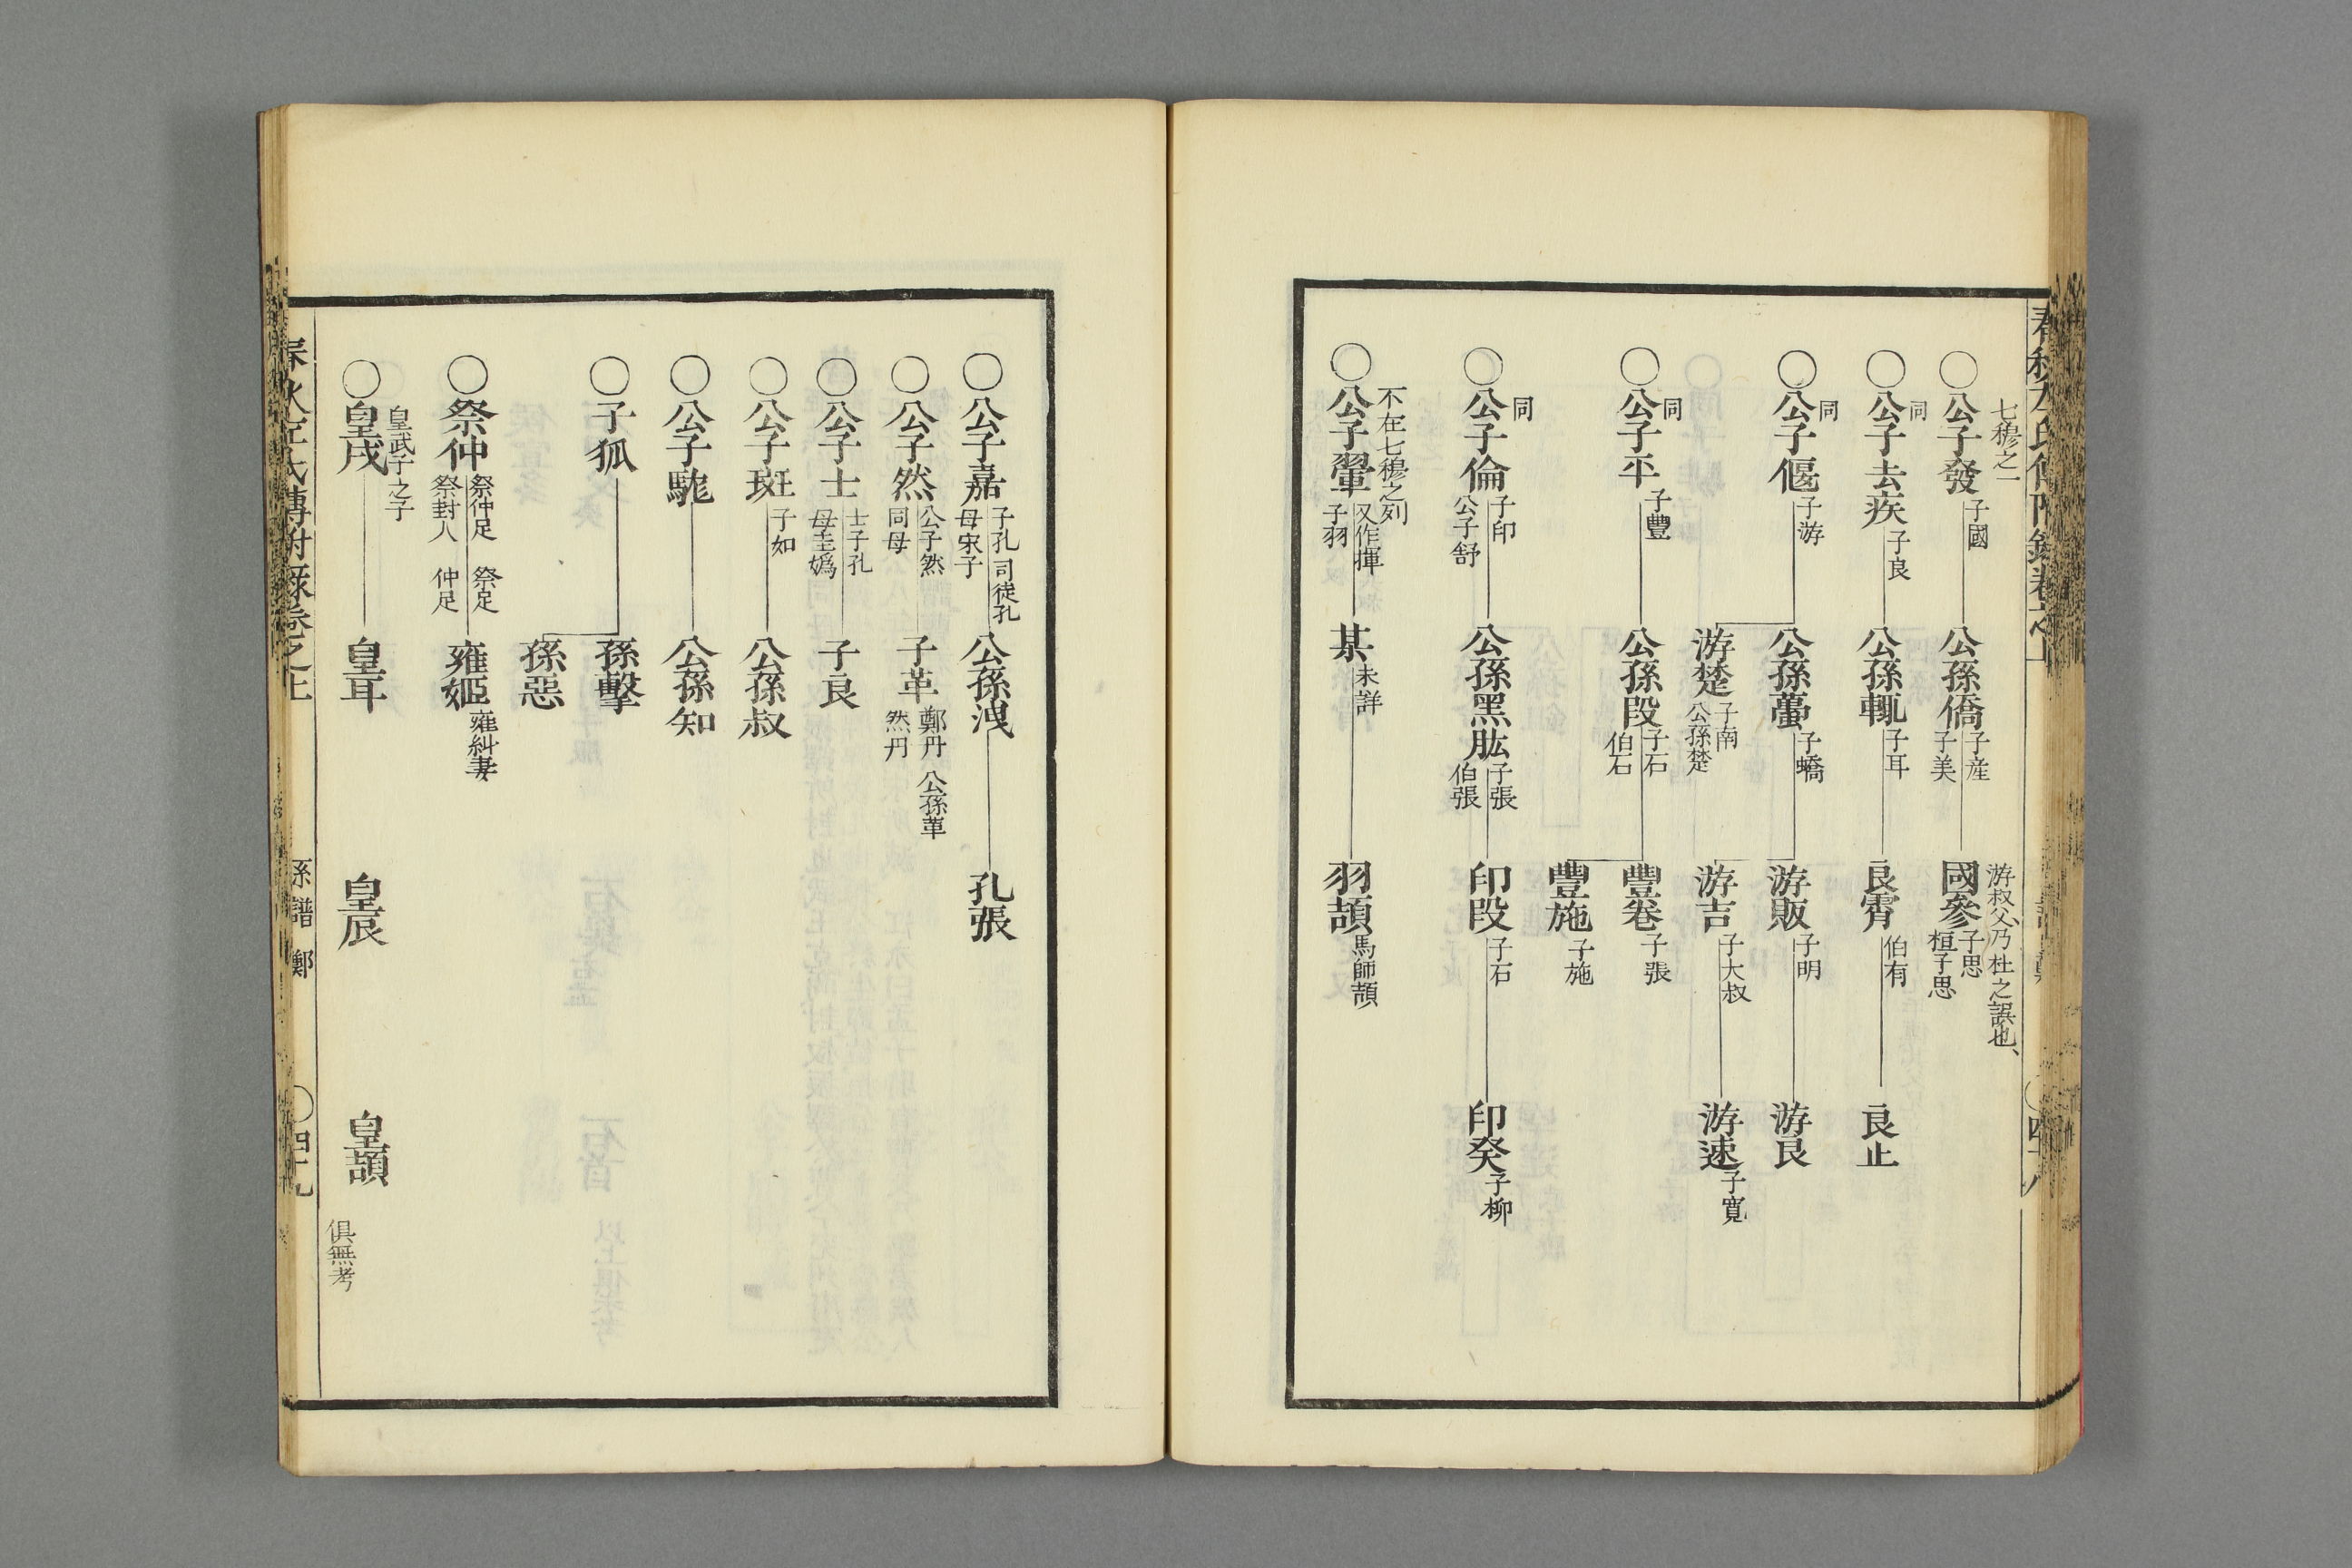 七穆之一
○公子發 子國 公孫僑 子産 子美 國參 子思 桓子思
游叔父、乃杜之誤也、
○同公子去疾 子良 公孫輒 子耳 良霄 伯有 良止
○同公子偃 子游 公孫蠆 子蟜 游販 子明 游良
游楚 子南 公孫楚 游吉 子大叔 游速 子寬
○同公子平 子豐 公孫段 子石 伯石 豐卷 子張
豐施 子施
○同公子倫 子印 公子舒 公孫黑肱 子張 伯張 印段 子石 印癸 子柳
不在七穆之列
○公子翬 又作揮 子羽 某 未詳 羽頡 馬師頡
○公子嘉 子孔 司徒孔 母宋子 公孫洩 孔張
○公子然 公子然 同母 子革 鄭丹 公孫革 然丹
○公子士 士子孔 母圭嬀 子良
○公子班 子如 公孫叔
○公子駹 公孫知
○子狐 孫擊
孫惡
○祭仲 祭仲足 祭足 祭封人 仲足 雍姬 雍糾妻
皇武子之子
○皇戌 皇耳 皇辰 皇頡
俱無考
春秋左氏傳附錄卷之上 系譜 鄭 ○四十九